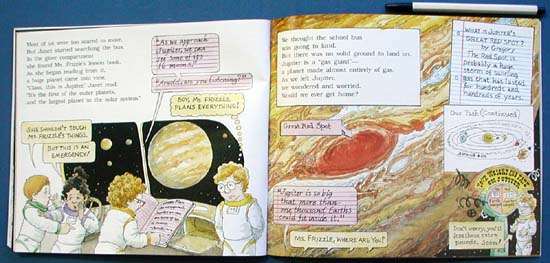 Most of us were too scared to move.
But Janet started searching the bus.
In the glove compartment
she found Ms. Frizzle's lesson book.
As she began reading from it,
a huge planet came into view.
"Class, this is Jupiter," Janet read.
"It's the first of the outer planets,
and the largest planet in the solar system."
"As we approach
Jupiter, we can
see some of its
16 moons."
"Arnold, are you listening?"
BOY, MS. FRIZZLE
PLANS EVERYTHING!
SHE SHOULDN'T TOUCH
MS. FRIZZLE'S THINGS.
BUT THIS IS AN
EMERGENCY!
We thought the school bus
was going to land.
But there was no solid ground to land on.
Jupiter is a "gas giant"—
a planet made almost entirely of gas.
As we left Jupiter,
we wondered and worried.
Would we ever get home?
Great Red Spot
"Jupiter is so big
that more than
one thousand Earths
could fit inside it."
MS. FRIZZLE, WHERE ARE YOU?
WHAT IS JUPITER'S
GREAT RED SPOT?
by Gregory
The Red Spot is
probably a huge
storm of swirling
gas that has lasted
for hundreds and
hundreds of years.
Our Path (Continued)
YOUR WEIGHT ON
Don't worry, you'll
lose those extra
pounds, soon!